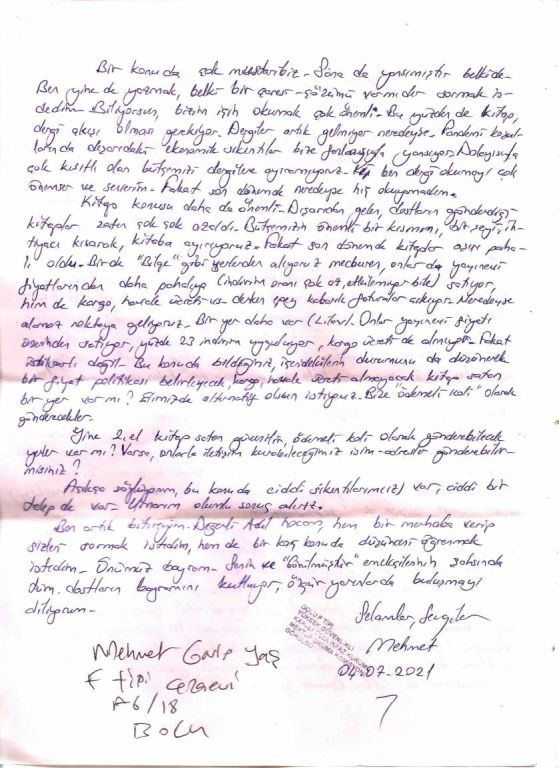 Bir konuda çok muzdaribiz. Size de yansımıştır belki de.
Ben yine de yazmak, belki bir çaresi - çözümü var mıdır sormak is-
dedim. Biliyorsun, bizim için okumak çok önemli. Bu yüzden de kitap,
dergi akışı olması gerekiyor. Dergiler artık gelmiyor neredeyse. Pandemi koşul-
larında dışarıdaki ekonomik sıkıntılar bize fazlasıyla yansıyor. Dolayısıyla
çok kısıtlı olan bütçemizi dergilere ayıramıyoruz. ben dergi okumayı çok
önemser ve severim. Fakat son dönemde neredeyse hiç okuyamadım.
Kitap konusu daha da önemli. Dışarıdan gelen, dostların gönderdiği
kitaplar zaten çok çok azaldı. Bütçemizin önemli bir kısmını, bir şeyi, ih-
tiyacı kısarak, kitaba ayırıyoruz. Fakat son dönemde kitaplar aşırı paha-
lı oldu. Bir de "Bilge" gibi yerlerden alıyoruz mecburen, onlar da yayınevi
fiyatlarından daha pahalıya (indirim oranı çok az, etkilemiyor bile) satıyor,
hem de kargo, havale ücreti vs. derken epey kabarık faturalar çıkıyor. Neredeyse
alamaz noktaya geliyoruz. Bir yer daha var (Liler). Onlar yayınevi fiyatı
üzerinden satıyor, yüzde 23 indirim uyguluyor, kargo ücreti de almıyor. Fakat
istikrarlı değil. Bu konuda bildiğiniz, içeridekilerin durumunu da düşünerek
bir fiyat politikası belirleyecek, kargo, havale ücreti almayacak kitap satan
bir yer var mı? Elimizde alternatif olsun istiyoruz. Bize "ödemeli koli" olarak
gönderecekler.
Yine 2. el kitap satan güvenilir, ödemeli koli olarak gönderebilecek
yerler var mı? Varsa, onlarla iletişim kurabileceğimiz isim-adresler gönderebilir
misiniz?
Açıkça söylüyorum, bu konuda ciddi sıkıntılarım(ız) var, ciddi bir
talep de var. Umarım olumlu sonuç alırız.
Ben artık bitireyim. Değerli Adil hocam, hem bir merhaba verip
sizleri sormak istedim, hem de bir kaç konuda düşünceni öğrenmek
istedim. Önümüz bayram. Senin ve "Görülmüştür" emekçilerinin şahsında
tüm dostların bayramını kutluyor, özgür yarınlarda buluşmayı
diliyorum.
Selamlar, Sevgiler
Mehmet
04.07.2021
BOLU F TİPİ
YÜKSEK GÜVENLİKLİ
KAPALI CEZA İNFAZ KURUMU
MEKTUP OKUMA KOMİSYONU
GÖRÜLDÜ
7
Mehmet Garip Yaş
F tipi cezaevi
A6/18
BOLU